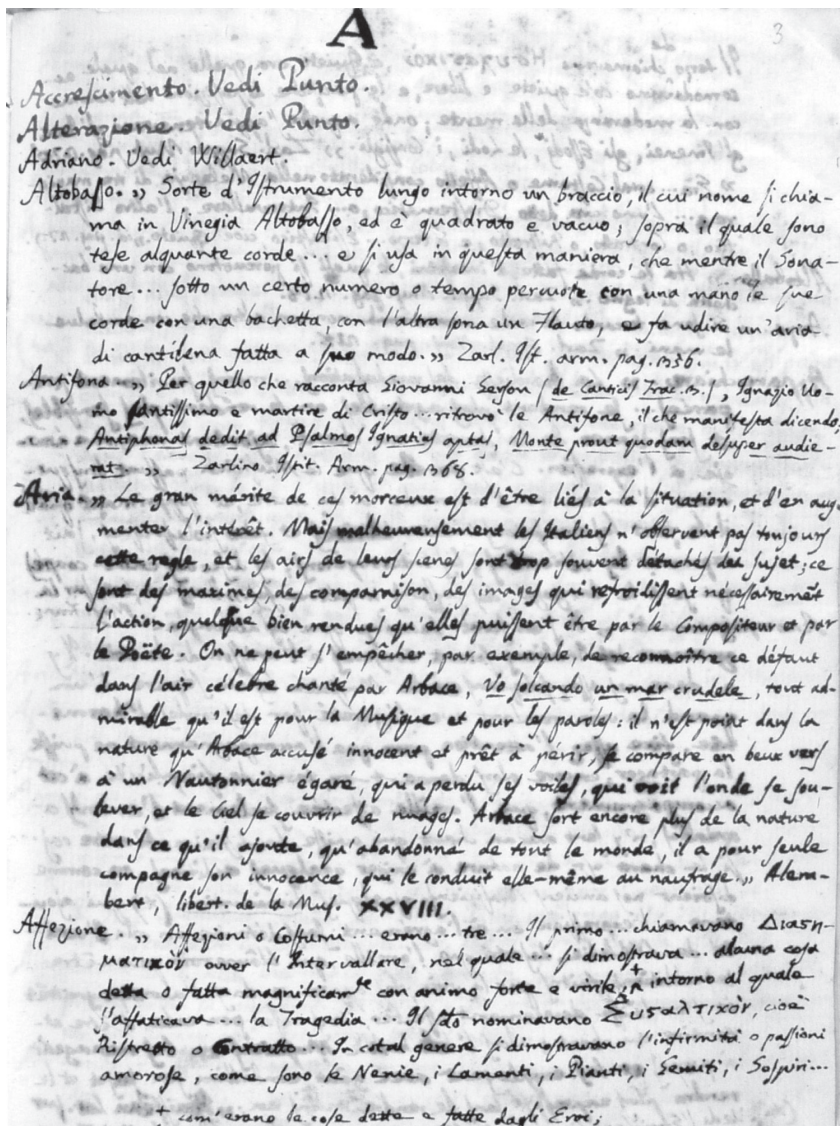 A
3
Accrescimento. Vedi Punto.
Alterazione. Vedi Punto.
Adriano. Vedi Willaert.
Altobasso. „ Sorte d'Istrumento lungo intorno un braccio, il cui nome si chia-
ma in Vinegia Altobasso, ed è quadrato e vacuo; sopra il quale sono
tese alquante corde... e si usa in questa maniera, che mentre il Sona-
tore... sotto un certo numero o tempo percuote con una mano le sue
corde con una bachetta, con l'altra sona un Flauto, e fa udire un'aria
di cantilena fatta a suo modo. „ Zarl. Ist. arm. pag.
Antifona. „ Per quello che racconta Giovanni Gerson (de Canticis Trac. 3.), Ignazio Uo-
mo santissimo e martire di Cristo... ritrovò le Antifone, il che manifesta dicendo,
Antiphonas dedit ad Psalmos Ignatius aptas, Monte prout quodam desuper audie-
rat. „ Zarlino Istit. Arm. pag.
Aria. „ Le gran mérite de ces morceux est d'être liés à la situation, et d'en aug-
menter l'intérêt. Mais malheureusement les Italiens n'observent pas toujours
cette regle, et les airs de leurs scenes sont trop souvent détachés du sujet; ce
sont des maximes, des comparaison, des images qui refroidissent nécessairemẽt
l'action, quelque bien rendues qu'elles puissent être par le Compositeur et par
le Poëte. On ne peut s'empêcher, par exemple, de reconnoître ce défaut
dans l'air célebre chanté par Arbace, Vo solcando un mar crudele, tout ad-
mirable qu'il est pour la Musique et pour les paroles: il n'est point dans la
nature qu'Arbace accusé innocent et prêt à périr, se compare en beux vers
à un Nautonnier égaré, qui a perdu ses voiles, qui voit l'onde se sou-
lever, et le Ciel se couvrir de nuages. Arbace sort encore plus de la nature
dans ce qu'il ajoute, qu'abandonné de tout le monde, il a pour seule
compagne son innocence, qui le conduit elle-même au naufrage. „ Alem-
bert, libert. de la Mus. XXVIII.
Affezione. „ Affezioni o Costumi... erano... tre... Il primo... chiamavano Διαση-
ματικὸν ovver l'Intervallare, nel quale... si dimostrava... alcuna cosa
detta o fatta magnificam.te con animo forte e virile, + intorno al quale
s'affaticava... la Tragedia... Il s.do nominavano Συσαλτικὸν, cioè
Ristretto o Contratto... In cotal genere si dimostravano l'infirmità o passioni
amorose, come sono le Nenie, i Lamenti, i Pianti, i Gemiti, i Sospiri...
+ com'erano le cose dette e fatte dagli Eroi;